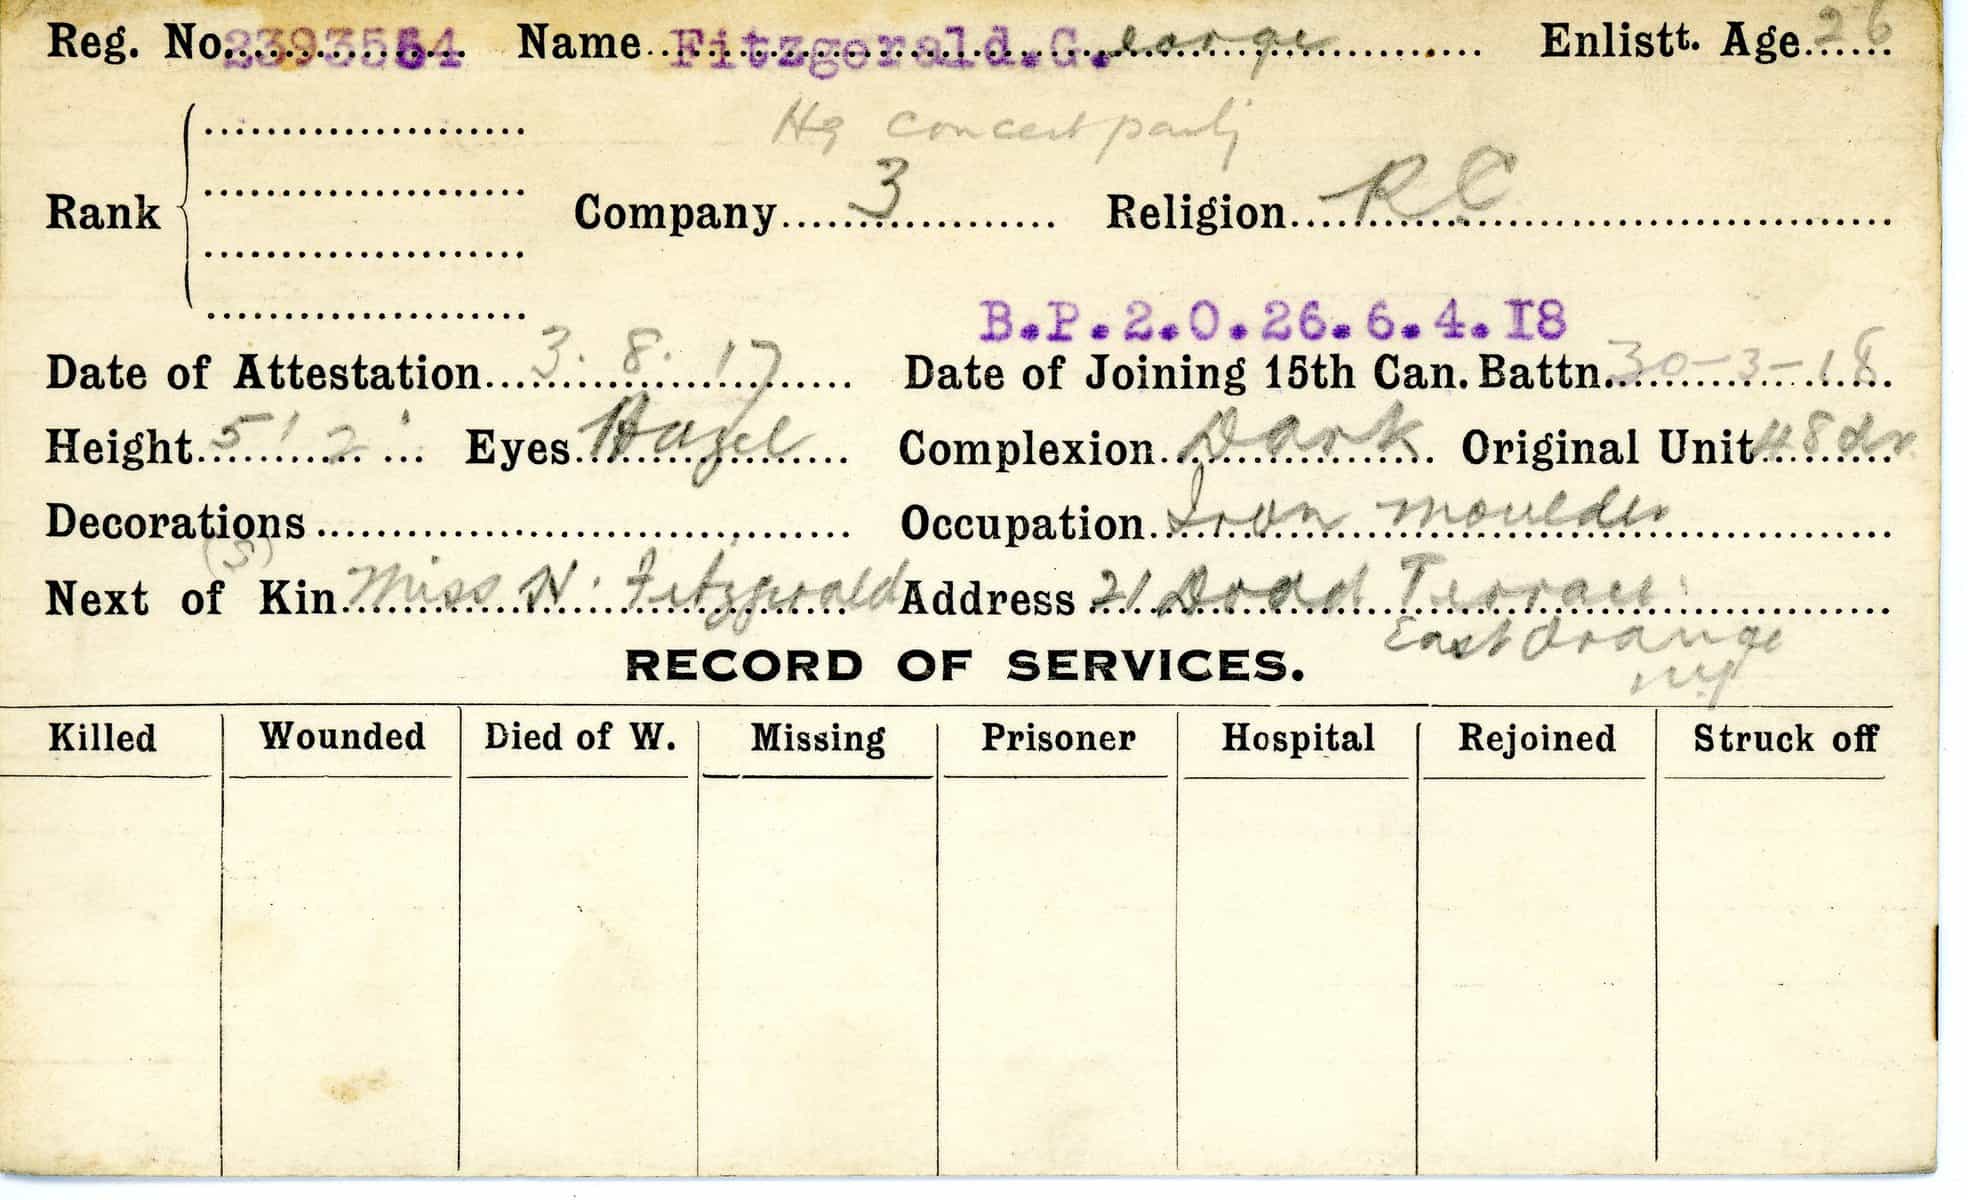 Reg. No. 2393554 Name Fitzgerald.G.eorge Enlistt. Age 26
Hq concert party
Rank Company 3 Religion RC
B.P.2.O.26.6.4.I8
Date of Attestation 3.8.17 Date of Joining 15th Can. Battn. 30-3-18
Height 5' 2" Eyes Hazel Complexion Dark Original Unit 48
Decorations Occupation Iron moulder
(S)
Next of Kin Miss N. Fitzgerald Address 21 Dodd Terrace
East Orange
RECORD OF SERVICES.
Killed Wounded Died of W. Missing Prisoner Hospital Rejoined Struck off